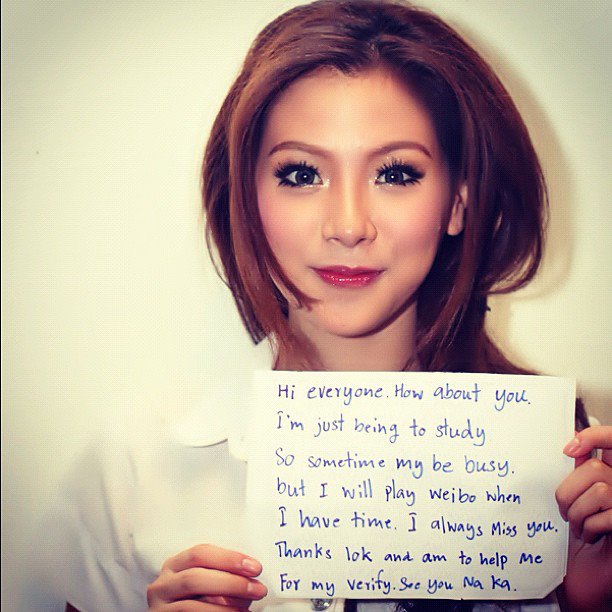 Hi everyone. How about you.
I'm just being to study
So sometime my be busy.
but I will play weibo when
I have time. I always Miss you.
Thanks lok and am to help Me
For my verify. See you Na Ka.